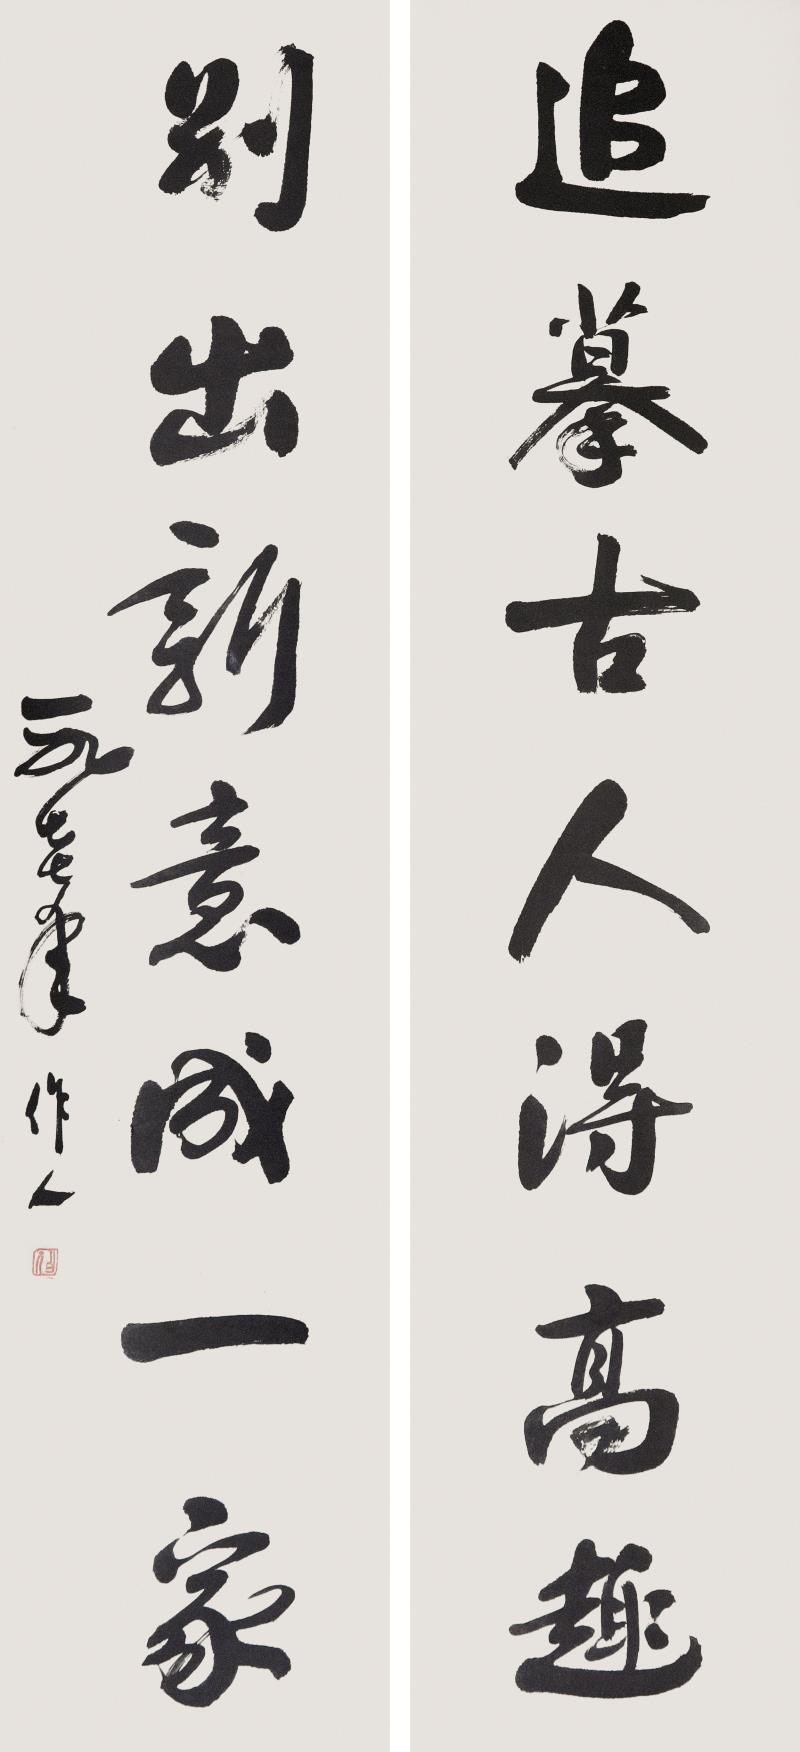 追摹古人得高趣
别出新意成一家
一九七七年 作人